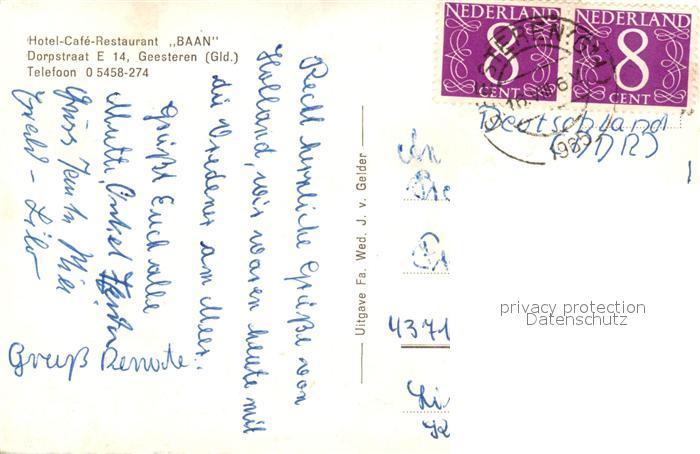 Hotel-Café-Restaurant „BAAN"
Dorpstraat E 14, Geesteren (Gld.)
Telefoon 0 5458-274
Recht herzliche Grüße von
Holland, wir waren heute mit
du Vredener am Meer.
Grüßt Euch alle
Mutti, Onkel
Gruß Renate
Uitgave Fa. Wed. J. v. Gelder
NEDERLAND
8
CENT
NEDERLAND
8
CENT
Deutschland
(DDR)
An
4371
Li
privacy protection
Datenschutz